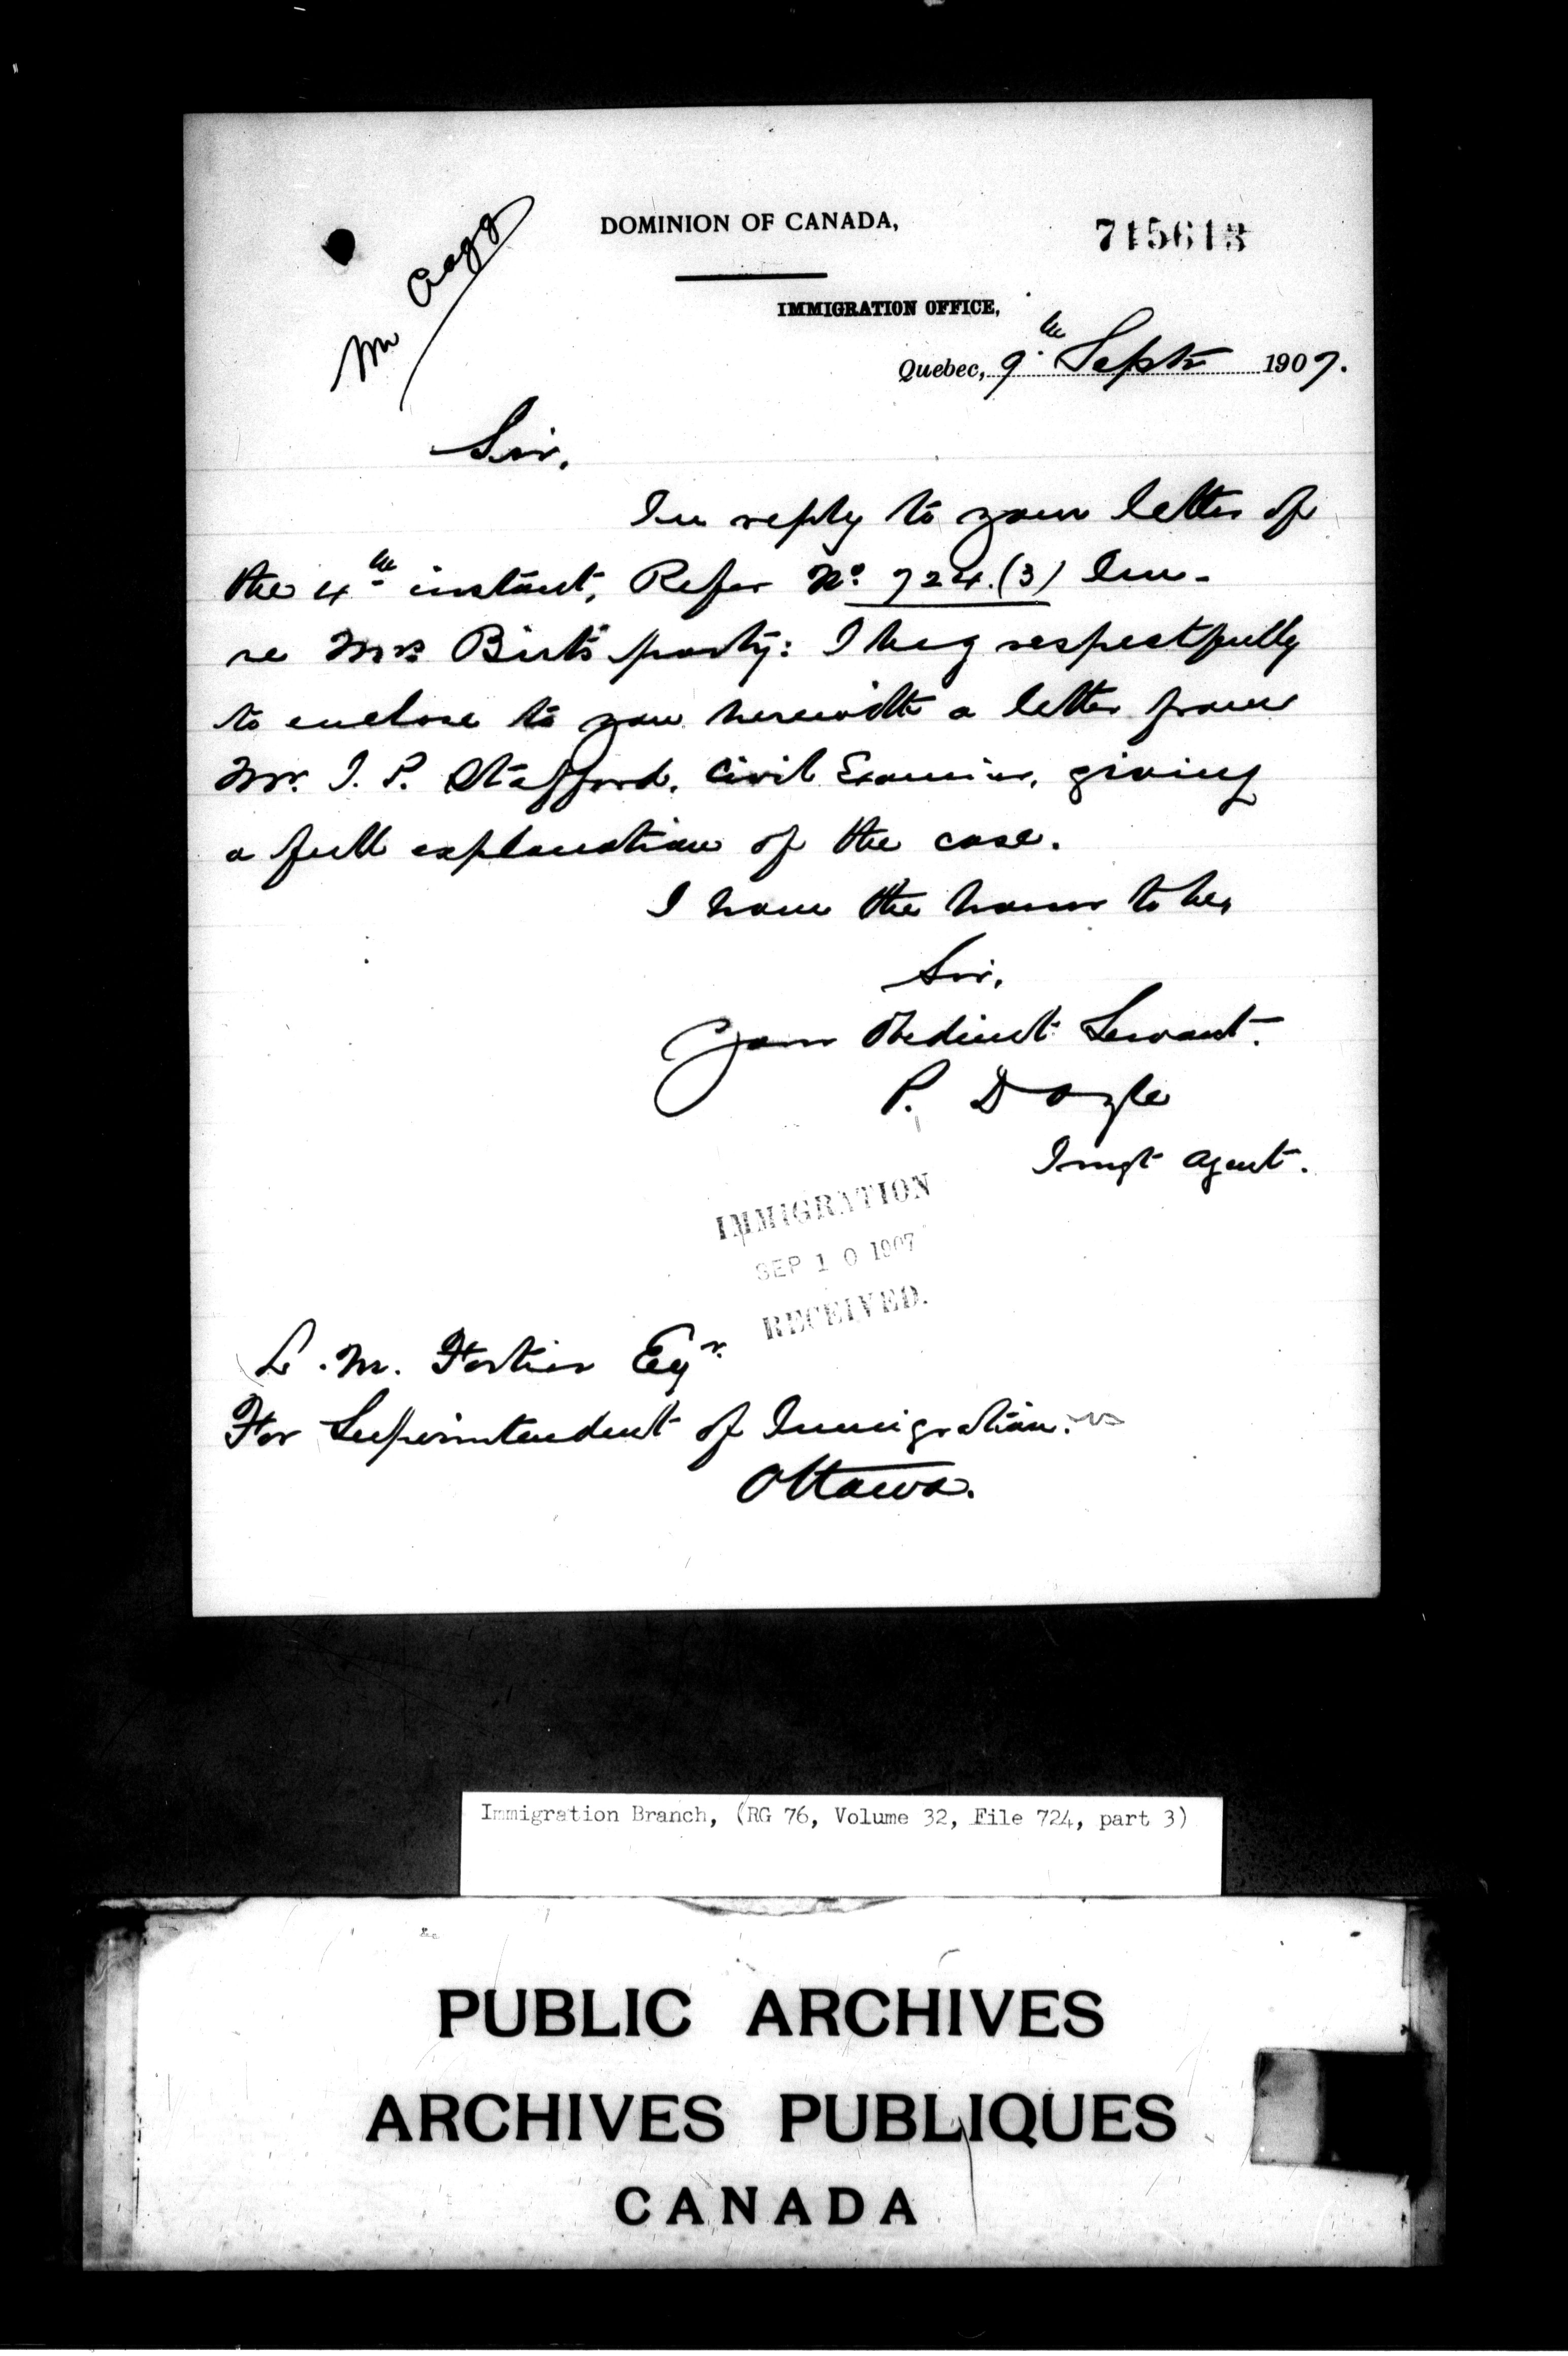 DOMINION OF CANADA,
715613
IMMIGRATION OFFICE,
Quebec, 9th Septr 1907.
Mr
Sir,
In reply to your letter of
the 4th instant, Refer No. 724.(3) Im-
re Mrs. Birt's party: I beg respectfully
to enclose to you herewith a letter from
Mr. J. P. Stafford, Civil Examiner, giving
a full explanation of the case.
I have the honor to be,
Sir,
Your Obedient Servant.
P. Doyle
Imgt Agent.
IMMIGRATION
SEP 10 1907
RECEIVED.
L. M. Fortier Esqr.
For Superintendent of Immigration.
Ottawa.
Immigration Branch, (RG 76, Volume 32, File 724, part 3)
PUBLIC ARCHIVES
ARCHIVES PUBLIQUES
CANADA